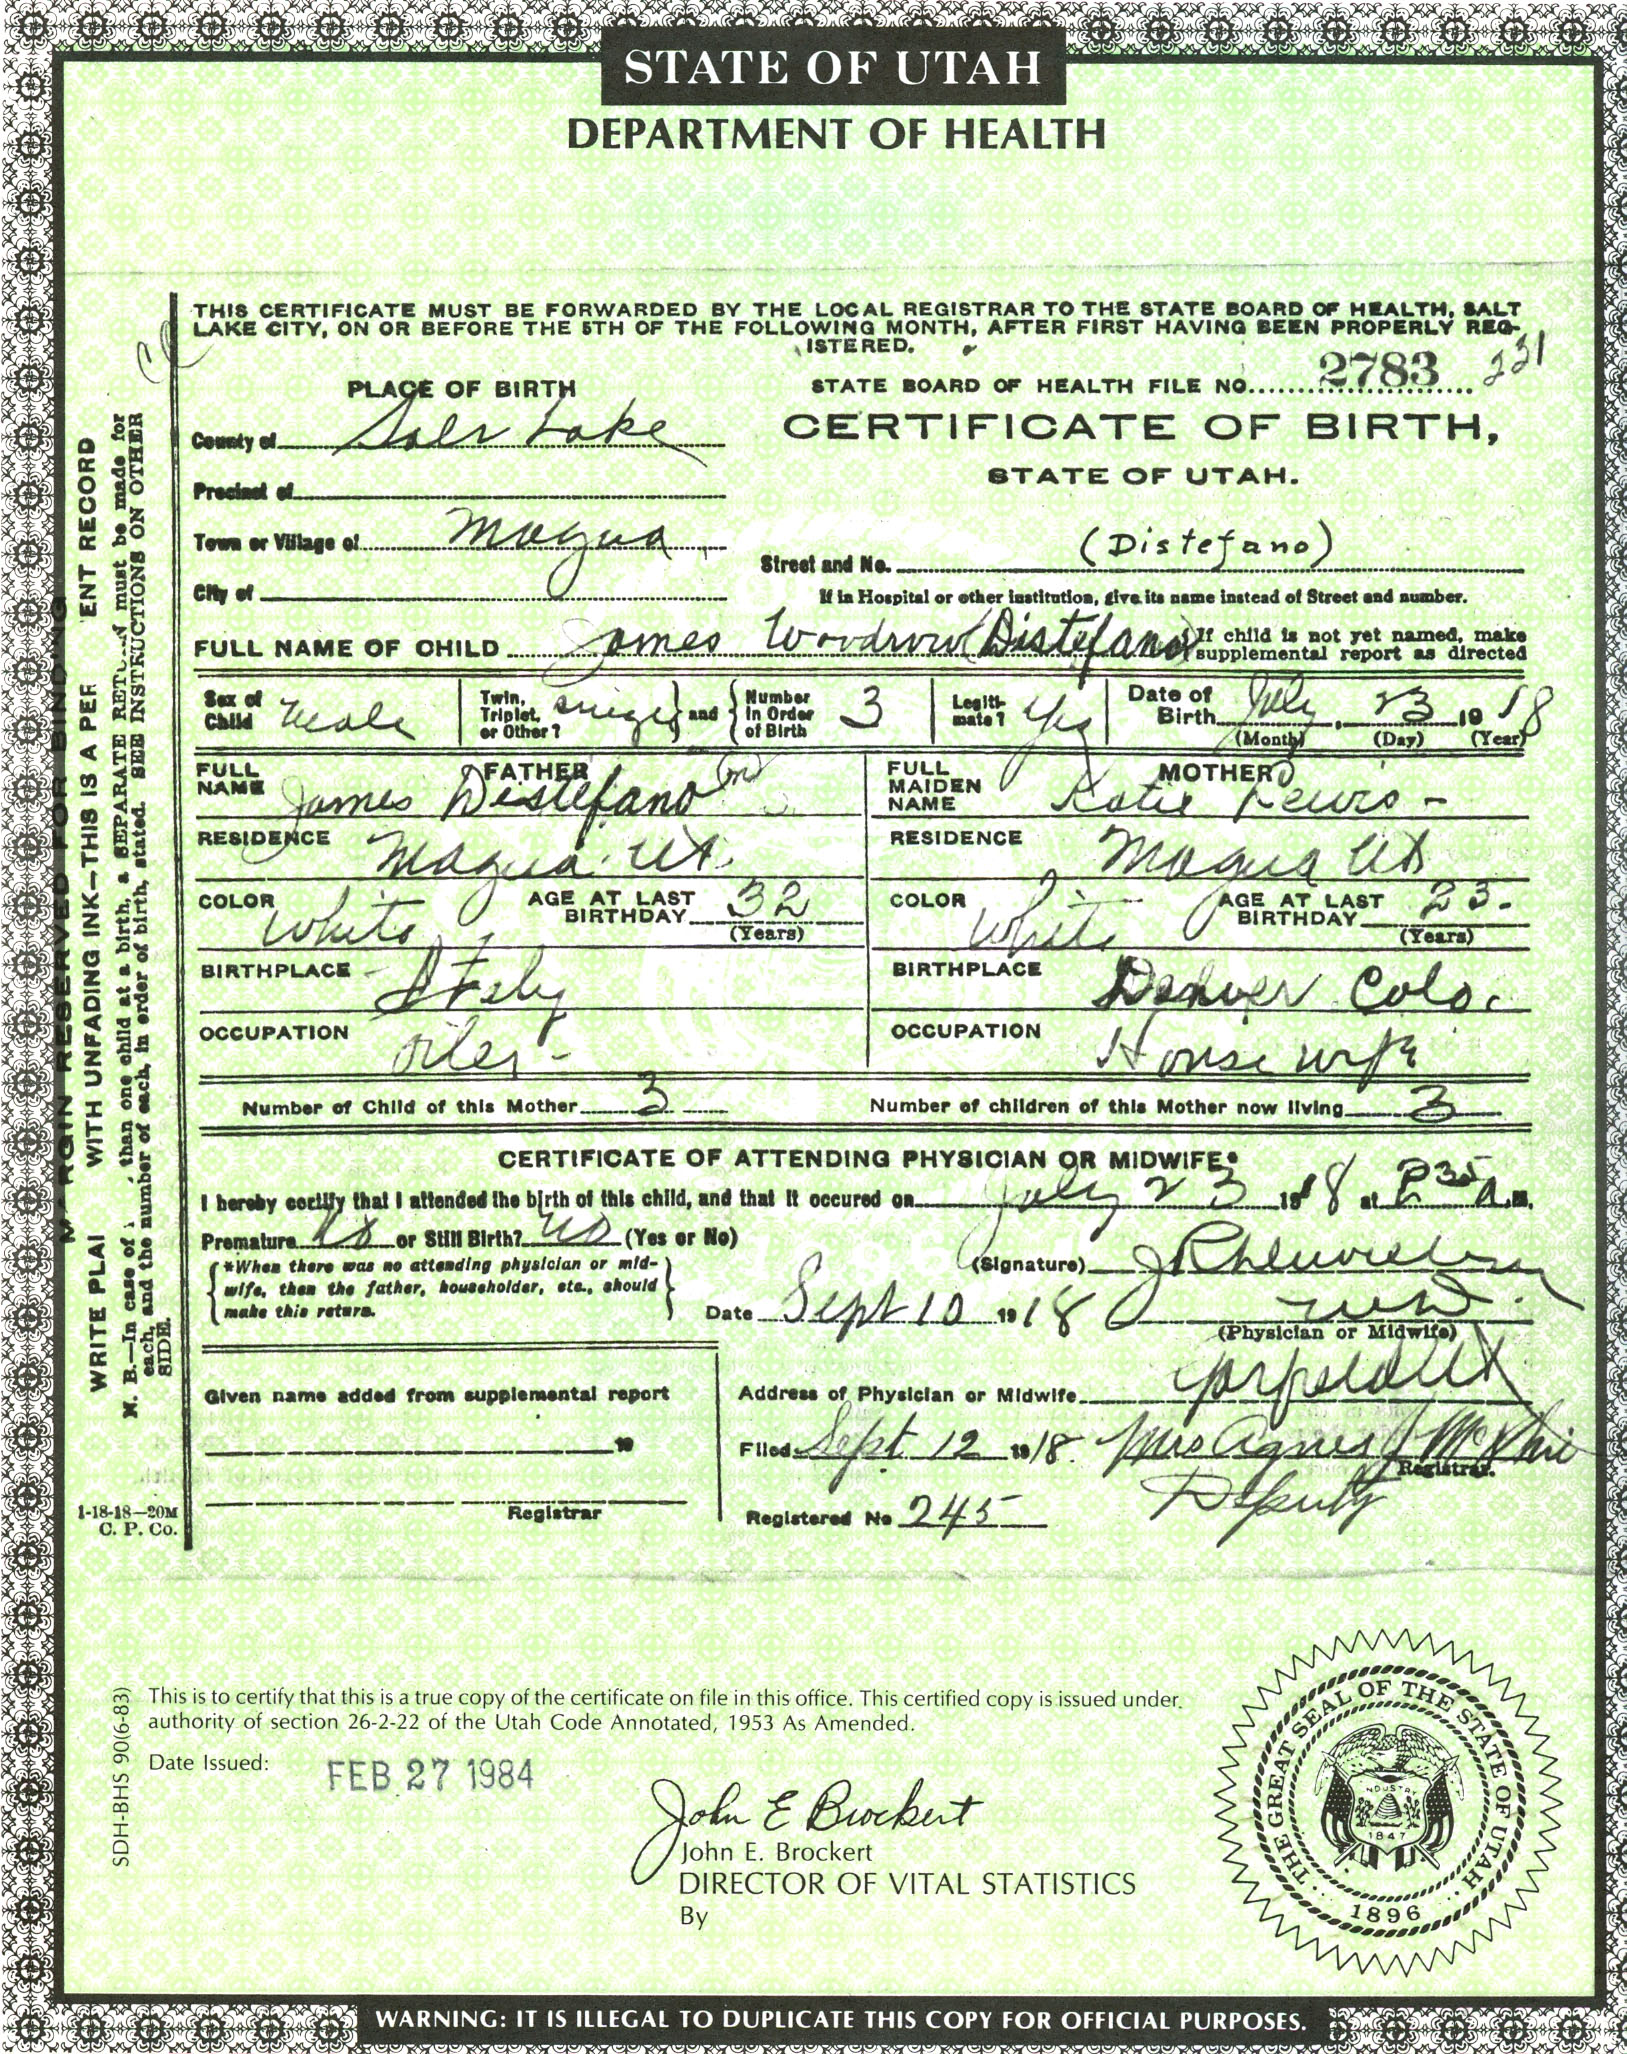 STATE OF UTAH
DEPARTMENT OF HEALTH
THIS CERTIFICATE MUST BE FORWARDED BY THE LOCAL REGISTRAR TO THE STATE BOARD OF HEALTH, SALT
LAKE CITY, ON OR BEFORE THE 5TH OF THE FOLLOWING MONTH, AFTER FIRST HAVING BEEN PROPERLY REG-
ISTERED.
231
PLACE OF BIRTH
STATE BOARD OF HEALTH FILE NO. 2783
County of Salt Lake
CERTIFICATE OF BIRTH,
STATE OF UTAH.
Precinct of
Town or Village of Magna
Street and No. (Distefano)
City of
If in Hospital or other institution, give its name instead of Street and number.
FULL NAME OF CHILD James Woodrow (Distefano)
If child is not yet named, make
supplemental report as directed
Sex of Child Male
Twin, Triplet, or Other? single and Number in Order of Birth 3
Legitimate? Yes
Date of Birth July 23 1918
(Month) (Day) (Year)
FULL NAME FATHER James Distefano
FULL MAIDEN NAME MOTHER Katie Lewis -
RESIDENCE Magna Ut.
RESIDENCE Magna Ut
COLOR White AGE AT LAST BIRTHDAY 32 (Years)
COLOR White AGE AT LAST BIRTHDAY 23. (Years)
BIRTHPLACE - Italy
BIRTHPLACE Denver Colo.
OCCUPATION oiler -
OCCUPATION House wife
Number of Child of this Mother 3
Number of children of this Mother now living 3
CERTIFICATE OF ATTENDING PHYSICIAN OR MIDWIFE*
I hereby certify that I attended the birth of this child, and that it occured on July 23 1918 at 35 A.M.
Premature No or Still Birth? No (Yes or No)
*When there was no attending physician or mid-
wife, then the father, householder, etc., should
make this return.
(Signature)
Date Sept 10 1918
(Physician or Midwife)
Given name added from supplemental report
Address of Physician or Midwife Garfield Ut
19
Filed Sept 12 1918. Mrs Agnes J
Registrar.
Deputy
Registrar
Registered No 245
MARGIN RESERVED FOR BINDING
WRITE PLAI WITH UNFADING INK—THIS IS A PER ENT RECORD
N. B.—In case of than one child at a birth, a SEPARATE RETURN must be made for
each, and the number of each, in order of birth, stated. SEE INSTRUCTIONS ON OTHER
SIDE.
1-18-18—20M
C. P. Co.
SDH-BHS 90(6-83)
This is to certify that this is a true copy of the certificate on file in this office. This certified copy is issued under
authority of section 26-2-22 of the Utah Code Annotated, 1953 As Amended.
Date Issued: FEB 27 1984
John E Brockert
John E. Brockert
DIRECTOR OF VITAL STATISTICS
By
THE GREAT SEAL OF THE STATE OF UTAH
INDUSTRY
1847
1896
WARNING: IT IS ILLEGAL TO DUPLICATE THIS COPY FOR OFFICIAL PURPOSES.